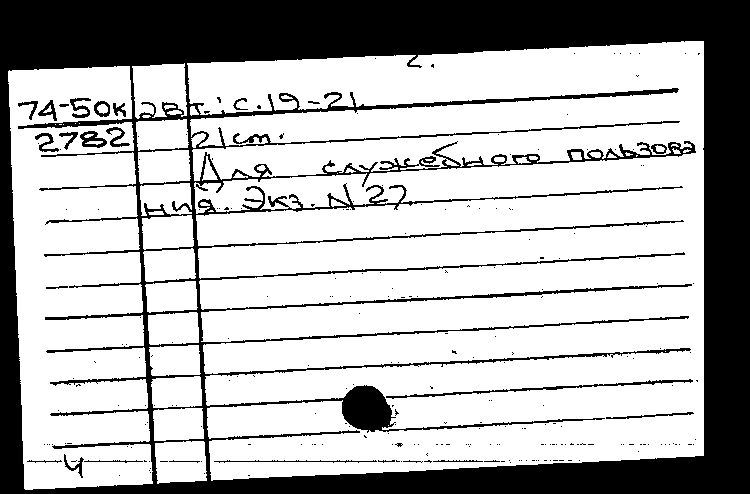 2.
74-50к авт.: с.19-21.
2782 21 cm.
Для служебного пользова
ния. Экз. N 27.
ч